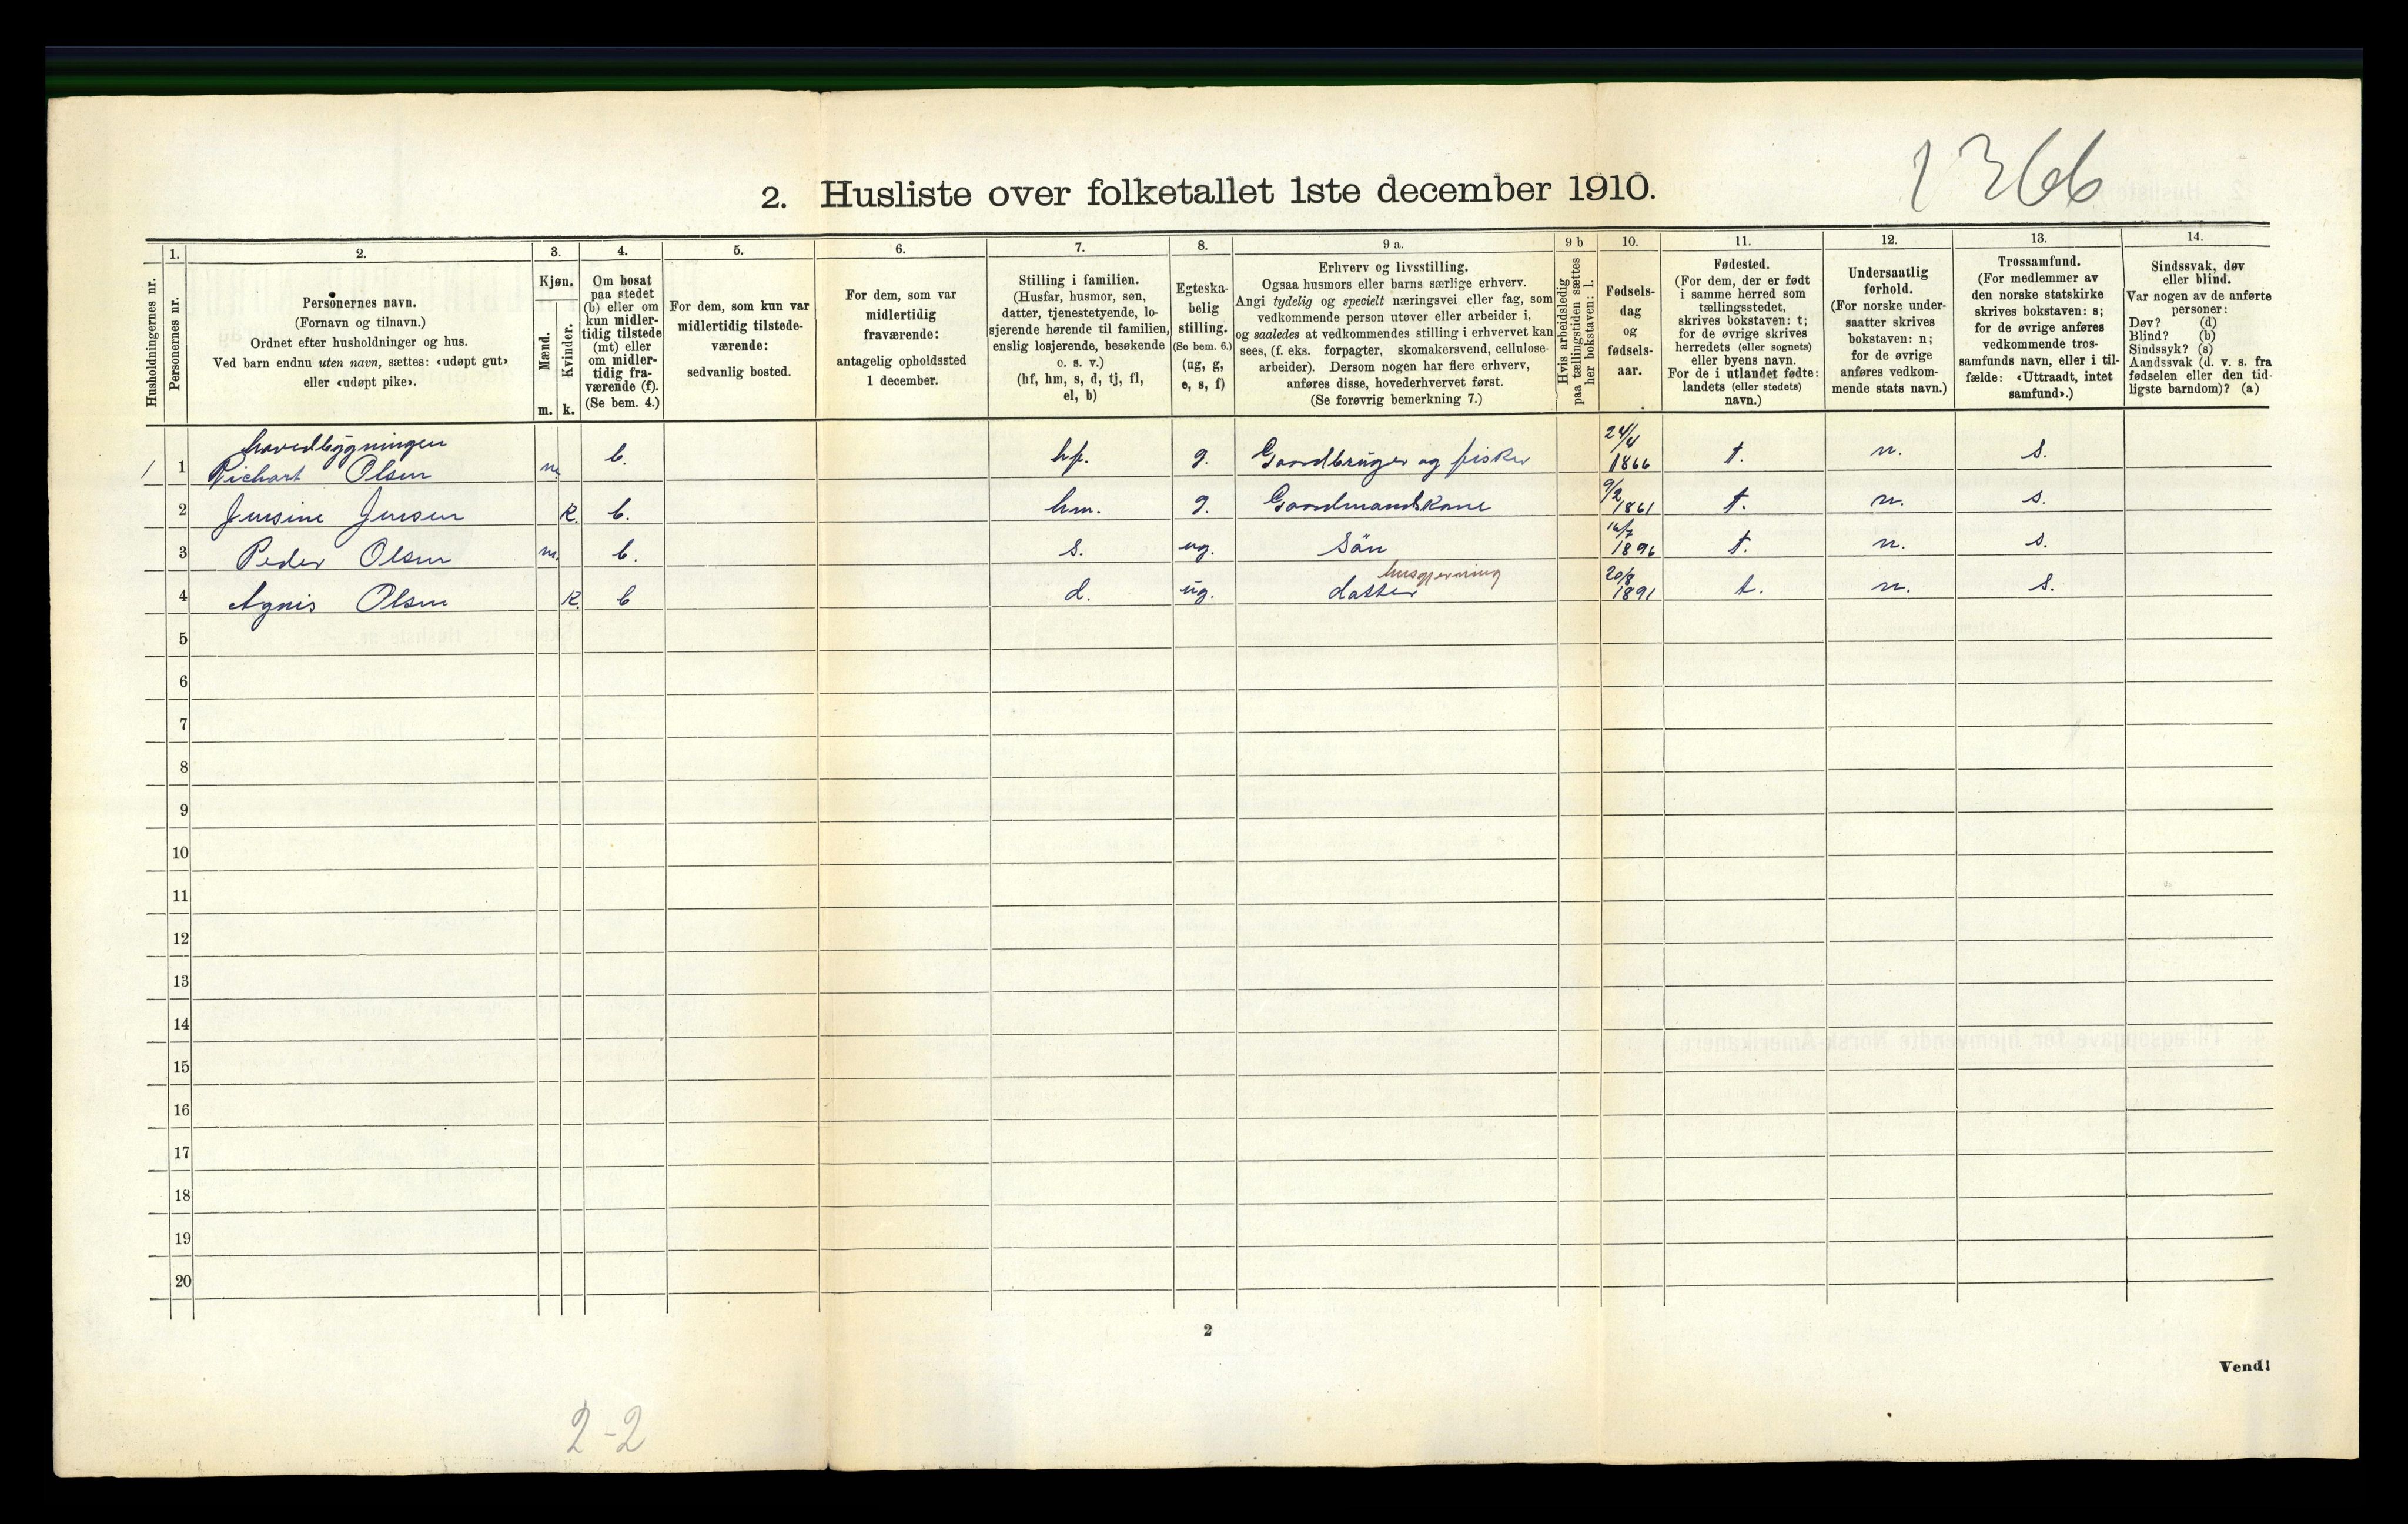 1366
2. Husliste over folketallet 1ste december 1910.
Husholdningernes nr.
1.
Personernes nr.
2.
Personernes navn.
(Fornavn og tilnavn.)
Ordnet efter husholdninger og hus.
Ved barn endnu uten navn, sættes: «udøpt gut»
eller «udøpt pike».
3.
Kjøn.
Mænd.
m.
Kvinder.
k.
4.
Om bosat
paa stedet
(b) eller om
kun midler-
tidig tilstede
(mt) eller
om midler-
tidig fra-
værende (f).
(Se bem. 4.)
5.
For dem, som kun var
midlertidig tilstede-
værende:
sedvanlig bosted.
6.
For dem, som var
midlertidig
fraværende:
antagelig opholdssted
1 december.
7.
Stilling i familien.
(Husfar, husmor, søn,
datter, tjenestetyende, lo-
sjerende hørende til familien,
enslig losjerende, besøkende
o. s. v.)
(hf, hm, s, d, tj, fl,
el, b)
8.
Egteska-
belig
stilling.
(Se bem. 6.)
(ug, g,
e, s, f)
9 a.
Erhverv og livsstilling.
Ogsaa husmors eller barns særlige erhverv.
Angi tydelig og specielt næringsvei eller fag, som
vedkommende person utøver eller arbeider i,
og saaledes at vedkommendes stilling i erhvervet kan
sees, (f. eks. forpagter, skomakersvend, cellulose-
arbeider). Dersom nogen har flere erhverv,
anføres disse, hovederhvervet først.
(Se forøvrig bemerkning 7.)
9 b
Hvis arbeidsledig
paa tællingstiden sættes
her bokstaven: l.
10.
Fødsels-
dag
og
fødsels-
aar.
11.
Fødested.
(For dem, der er født
i samme herred som
tællingsstedet,
skrives bokstaven: t;
for de øvrige skrives
herredets (eller sognets)
eller byens navn.
For de i utlandet fødte:
landets (eller stedets)
navn.)
12.
Undersaatlig
forhold.
(For norske under-
saatter skrives
bokstaven: n;
for de øvrige
anføres vedkom-
mende stats navn.)
13.
Trossamfund.
(For medlemmer av
den norske statskirke
skrives bokstaven: s;
for de øvrige anføres
vedkommende tros-
samfunds navn, eller i til-
fælde: «Uttraadt, intet
samfund».)
14.
Sindssvak, døv
eller blind.
Var nogen av de anførte
personer:
Døv? (d)
Blind? (b)
Sindssyk? (s)
Aandssvak (d. v. s. fra
fødselen eller den tid-
ligste barndom)? (a)
hovedbygningen
1 1 Richart Olsen m. b. hf. g. Gaardbruger og fisker 24/4 1866 t. n. s.
2 Jensine Jensen K. b. hm. g. Gaardmandskone 9/2 1861 t. n. s.
3 Peder Olsen m. b. s. ug. Sön 16/7 1896 t. n. s.
husgjerning
4 Agnis Olsen K. b d. ug. datter 20/8 1891 t. n. s.
5
6
7
8
9
10
11
12
13
14
15
16
17
18
19
20
2
Vend!
2-2